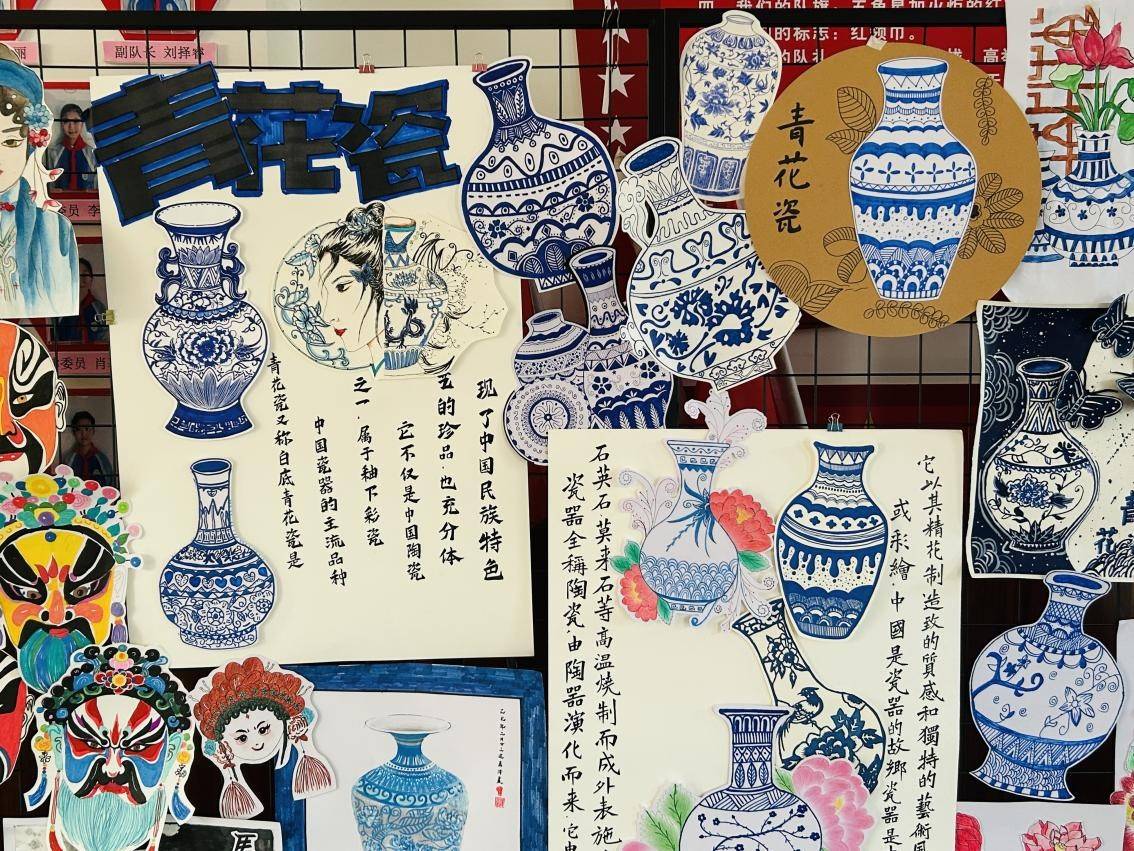 丽
副队长 刘择睿
四、我们的队旗：五角星加火炬的红
们的标志：红领巾。
委员 李
委员 肖
青花瓷
青花瓷又称白底青花瓷是
中国瓷器的主流品种
之一.属于釉下彩瓷
它不仅是中国陶瓷
的珍品.也充分体
现了中国民族特色
青花瓷
瓷器全稱陶瓷由陶器演化而来.它
石英石莫来石等高温燒制而成外表施
或彩繪.中國是瓷器的故鄉瓷器是
它以其精花制造致的質感和獨特的藝術
青花